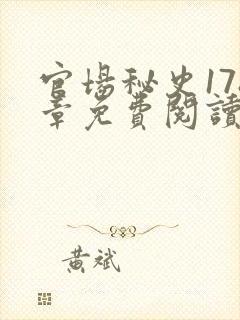 官場秘史17
章免費閱讀
黃斌